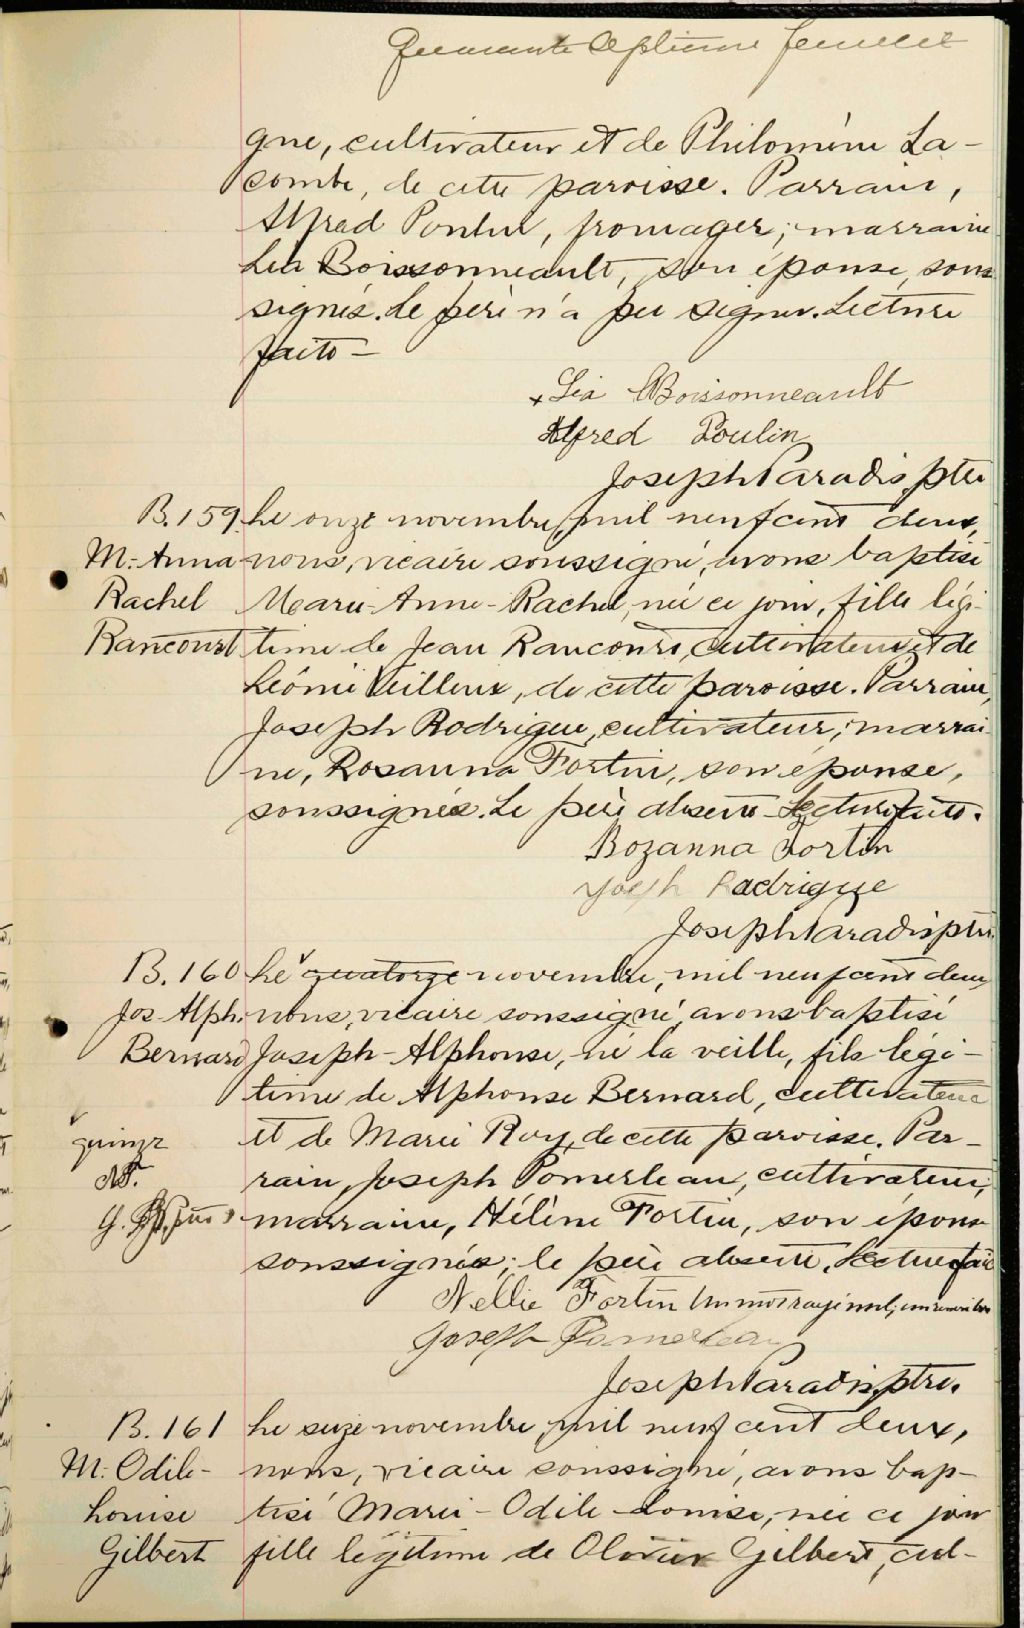 Quarante septième feuillet
gne, cultivateur et de Philomène La-
combe, de cette paroisse. Parrain,
Alfred Poulin, fromager; marraine
Léa Boissonneault, son épouse, sous
signés. Le père n'a pu signer. Lecture
faite –
+ Léa Boissonneault
Alfred Poulin
Joseph Paradis ptre
B. 159. Le onze novembre, mil neuf cent deux,
M. Anna nous, vicaire soussigné, avons baptisé
Rachel Marie-Anne-Rachel, née ce jour, fille légi-
Rancourt time de Jean Rancourt, cultivateur et de
Léonie Veilleux, de cette paroisse. Parrain,
Joseph Rodrigue, cultivateur; marrai-
ne, Rosanna Fortin, son épouse,
soussignés. Le père absent. Lecture faite.
Rozanna Fortin
Joseph Radrigue
Joseph Paradis ptre
B. 160 Le quatorze novembre, mil neuf cent deux
Jos Alph. nous, vicaire soussigné, avons baptisé
Bernard Joseph-Alphonse, né la veille, fils légi-
time de Alphonse Bernard, cultivateur
quinze et de Marie Roy, de cette paroisse. Par-
N.F. rain, Joseph Pomerleau, cultivateur,
J.P. ptre marraine, Hélène Fortin, son épouse
soussignés; le père absent. Lecture faite
Nellie Fortin Un mot rayé nul; un renvoi bon
Joseph Pomerleau
Joseph Paradis, ptre.
B. 161 Le seize novembre, mil neuf cent deux,
M. Odile- nous, vicaire soussigné, avons bap-
Louise tisé Marie-Odile-Louise, née ce jour
Gilbert fille légitime de Olivier Gilbert, cul-